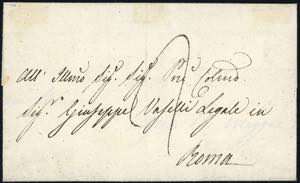 All' Illmo Sig. Sig. Pne Colmo
Sig. Giuseppe Vasselli Legale in
Roma